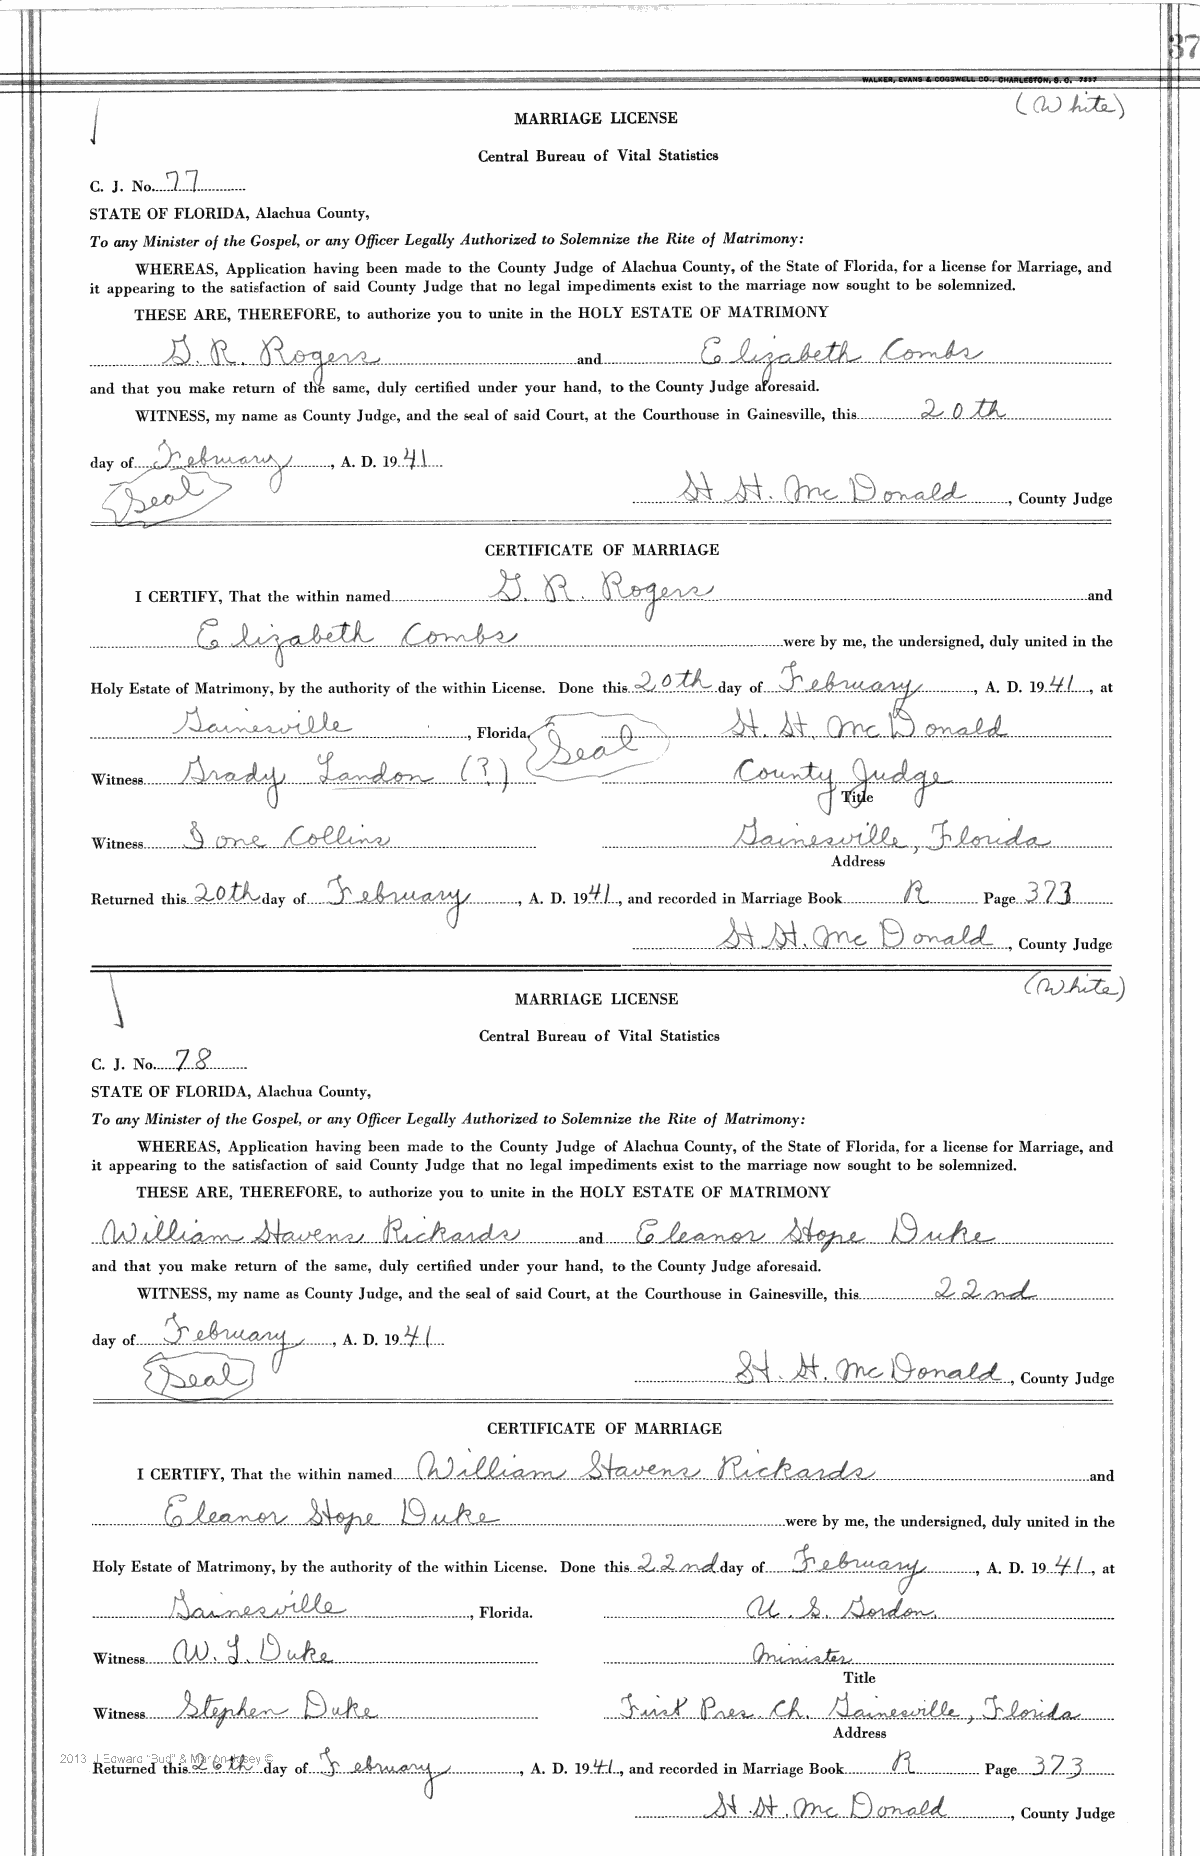 37
WALKER, EVANS & COGSWELL CO., CHARLESTON, S. C. 7337
(White)
MARRIAGE LICENSE
Central Bureau of Vital Statistics
C. J. No. 77
STATE OF FLORIDA, Alachua County,
To any Minister of the Gospel, or any Officer Legally Authorized to Solemnize the Rite of Matrimony:
WHEREAS, Application having been made to the County Judge of Alachua County, of the State of Florida, for a license for Marriage, and
it appearing to the satisfaction of said County Judge that no legal impediments exist to the marriage now sought to be solemnized.
THESE ARE, THEREFORE, to authorize you to unite in the HOLY ESTATE OF MATRIMONY
G. R. Rogers and Elizabeth Combs
and that you make return of the same, duly certified under your hand, to the County Judge aforesaid.
WITNESS, my name as County Judge, and the seal of said Court, at the Courthouse in Gainesville, this 20th
day of February, A. D. 1941
Seal
H. H. McDonald, County Judge
CERTIFICATE OF MARRIAGE
I CERTIFY, That the within named G. R. Rogers and
Elizabeth Combs were by me, the undersigned, duly united in the
Holy Estate of Matrimony, by the authority of the within License. Done this 20th day of February, A. D. 1941, at
Gainesville, Florida. Seal H. H. McDonald
Witness Grady Landon (?) County Judge
Title
Witness Ione Collins Gainesville, Florida
Address
Returned this 20th day of February, A. D. 1941, and recorded in Marriage Book R Page 373
H. H. McDonald, County Judge
(White)
MARRIAGE LICENSE
Central Bureau of Vital Statistics
C. J. No. 78
STATE OF FLORIDA, Alachua County,
To any Minister of the Gospel, or any Officer Legally Authorized to Solemnize the Rite of Matrimony:
WHEREAS, Application having been made to the County Judge of Alachua County, of the State of Florida, for a license for Marriage, and
it appearing to the satisfaction of said County Judge that no legal impediments exist to the marriage now sought to be solemnized.
THESE ARE, THEREFORE, to authorize you to unite in the HOLY ESTATE OF MATRIMONY
William Havens Rickards and Eleanor Hope Duke
and that you make return of the same, duly certified under your hand, to the County Judge aforesaid.
WITNESS, my name as County Judge, and the seal of said Court, at the Courthouse in Gainesville, this 22nd
day of February, A. D. 1941
Seal
H. H. McDonald, County Judge
CERTIFICATE OF MARRIAGE
I CERTIFY, That the within named William Havens Rickards and
Eleanor Hope Duke were by me, the undersigned, duly united in the
Holy Estate of Matrimony, by the authority of the within License. Done this 22nd day of February, A. D. 1941, at
Gainesville, Florida. U. S. Gordon.
Witness W. L. Duke Minister
Title
Witness Stephen Duke First Pres. Ch. Gainesville, Florida
Address
2013 J Edward "Bud" &
Returned this 26th day of February, A. D. 1941, and recorded in Marriage Book R Page 373
H. H. McDonald, County Judge